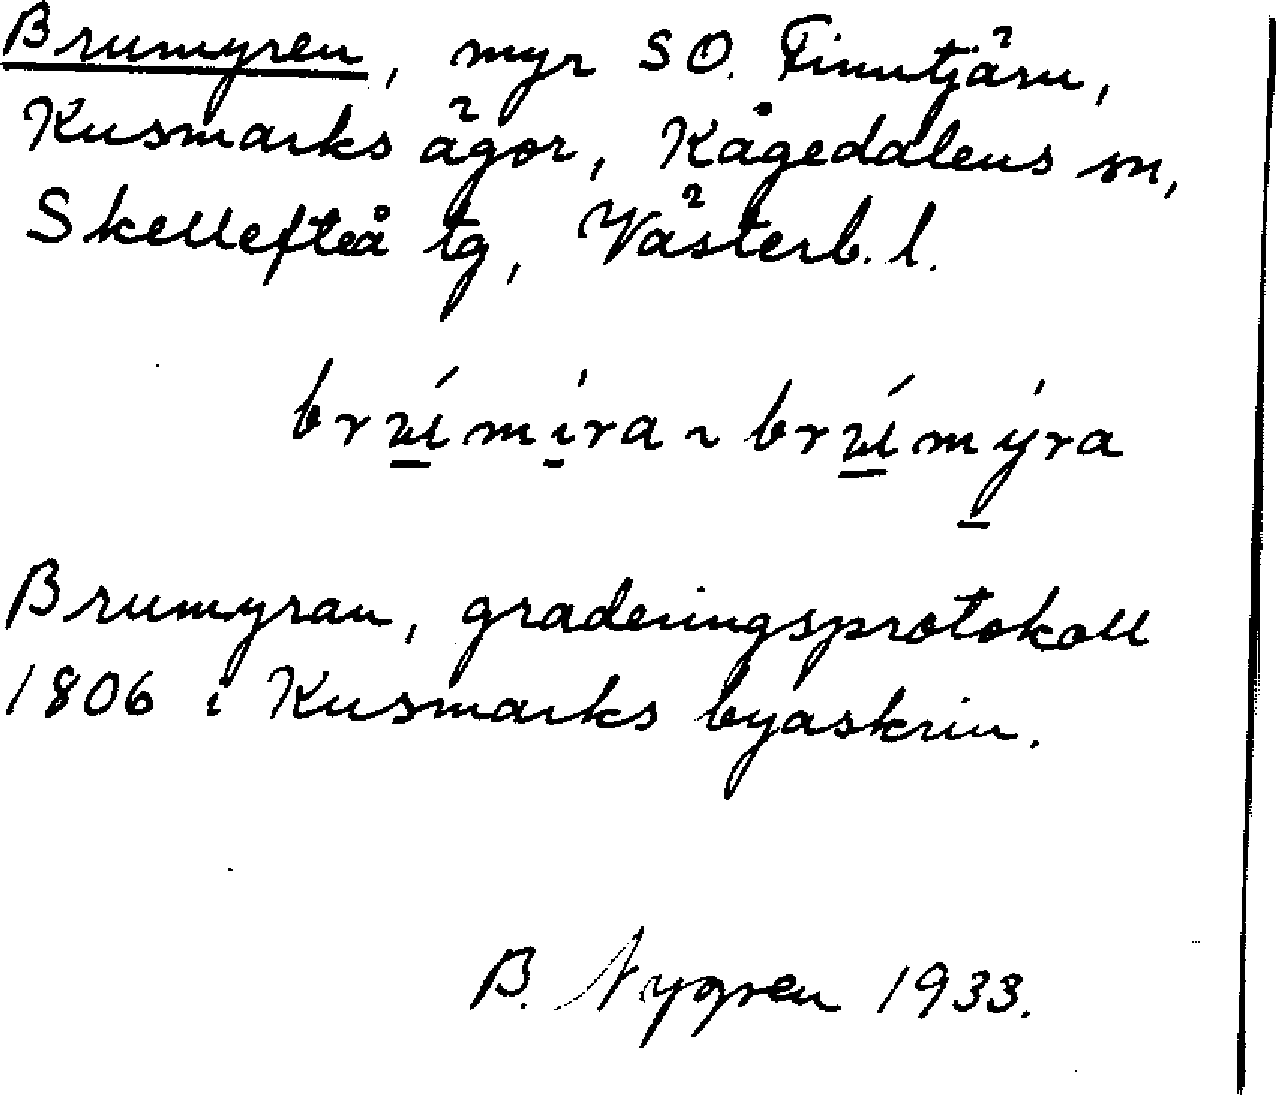 Brumyren, myr SO. Finntjärn,
Kusmarks ägor, Kågedalens sn,
Skellefteå tg, Västerb. l.
brʉ̲́mì̲ra ~ brʉ̲́mỳ̲ra
Brumyran, graderingsprotokoll
1806 i Kusmarks byaskrin.
B. Nygren 1933.